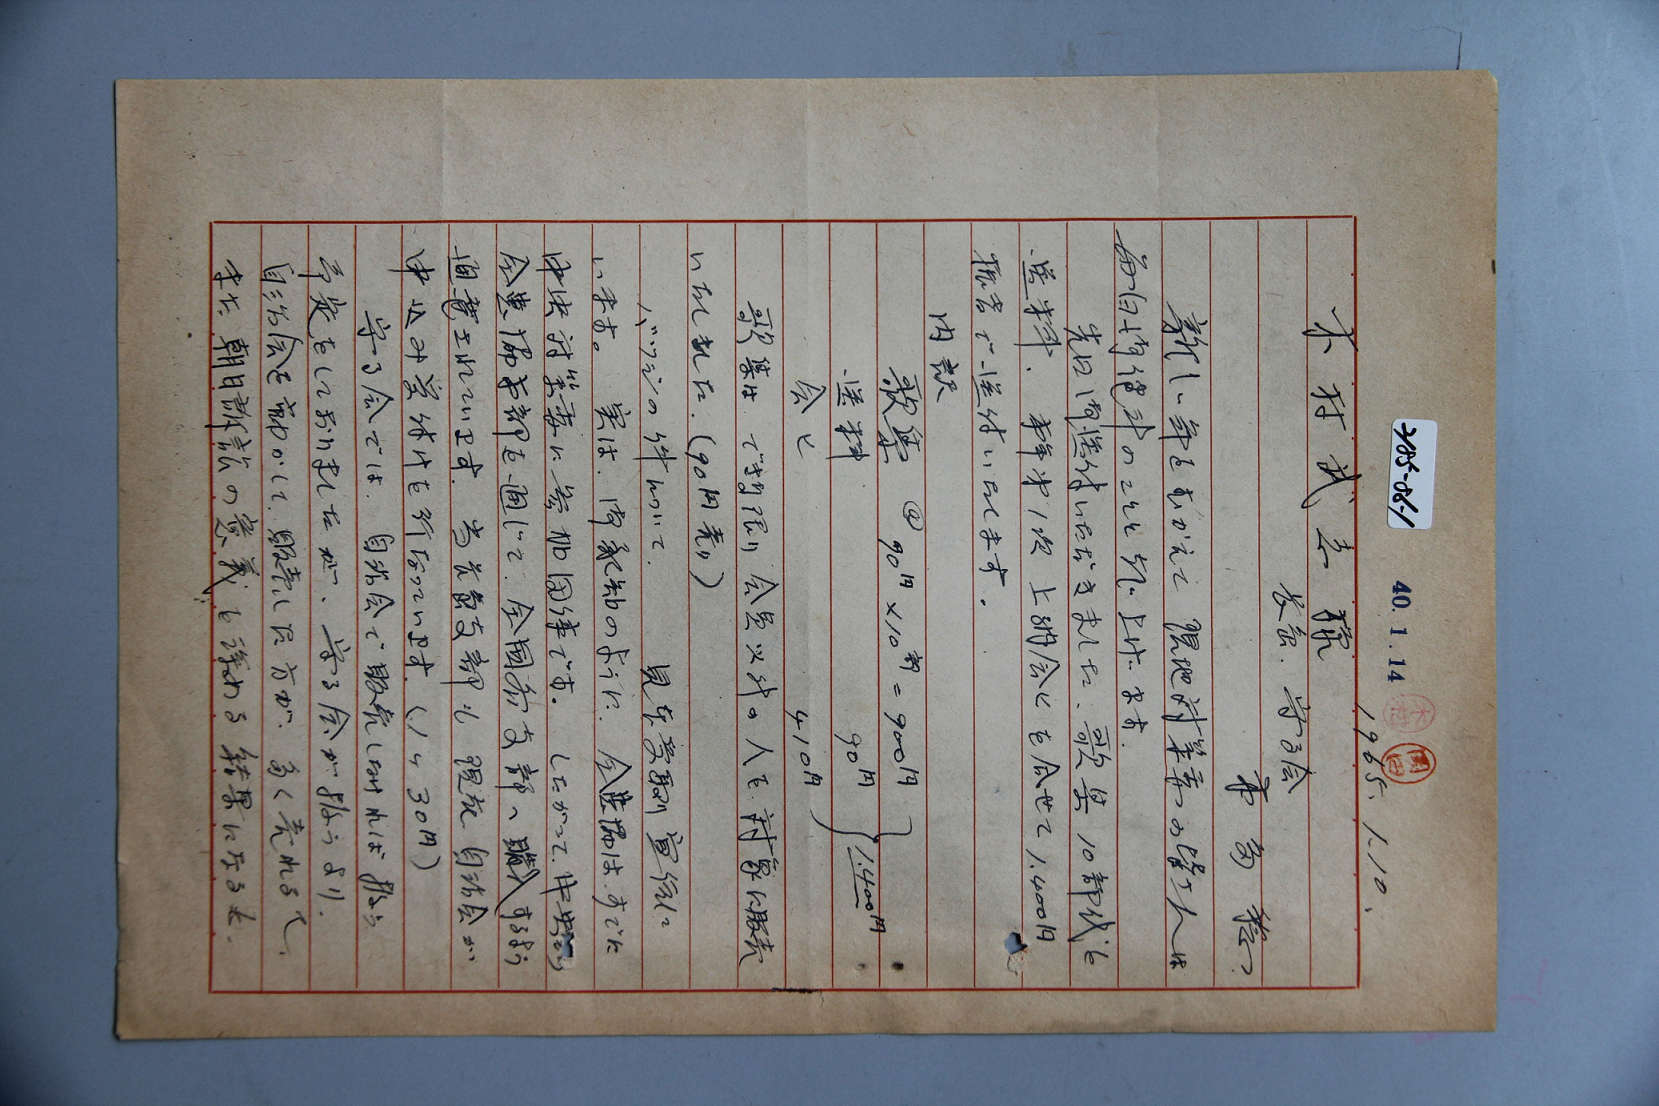 2185-086-1
40.1.14
1965. 1. 10.
木村武 様
長船. 守る会
新しい年をむかえて 現地対策委の皆さんは
毎日御健斗のことと存じ上げます.
先日御送付いただきました、歌集 10部代と
送料、 第1次 上納会ヒを合せて 1,400円
振替で送付いたします。
内訳
歌集 @ 90円×10部=900円
送料 90円
会ヒ 410円
1,400円
歌集は、できる限り 会員以外の人を対象に販売
いたしました.(90円売り)
バッジの件について. 見本受取り
います。 実は. 御承知のように. 全造船は.すでに
中央対策委に参加団体です. したがって.中央から
全造船本部を通じて. 全国各支部へ購入するよう
通達されています. 当長船支部も 現在 自治会が
申込み受付けを行なっています.(1ヶ30円)
守る会では. 自治会で販売しなければ
予定をしておりましたが、守る会が よりも.
自治会を動かして.販売した方が、多く売れると、
また 朝日訴訟の意義も深める結果になると.